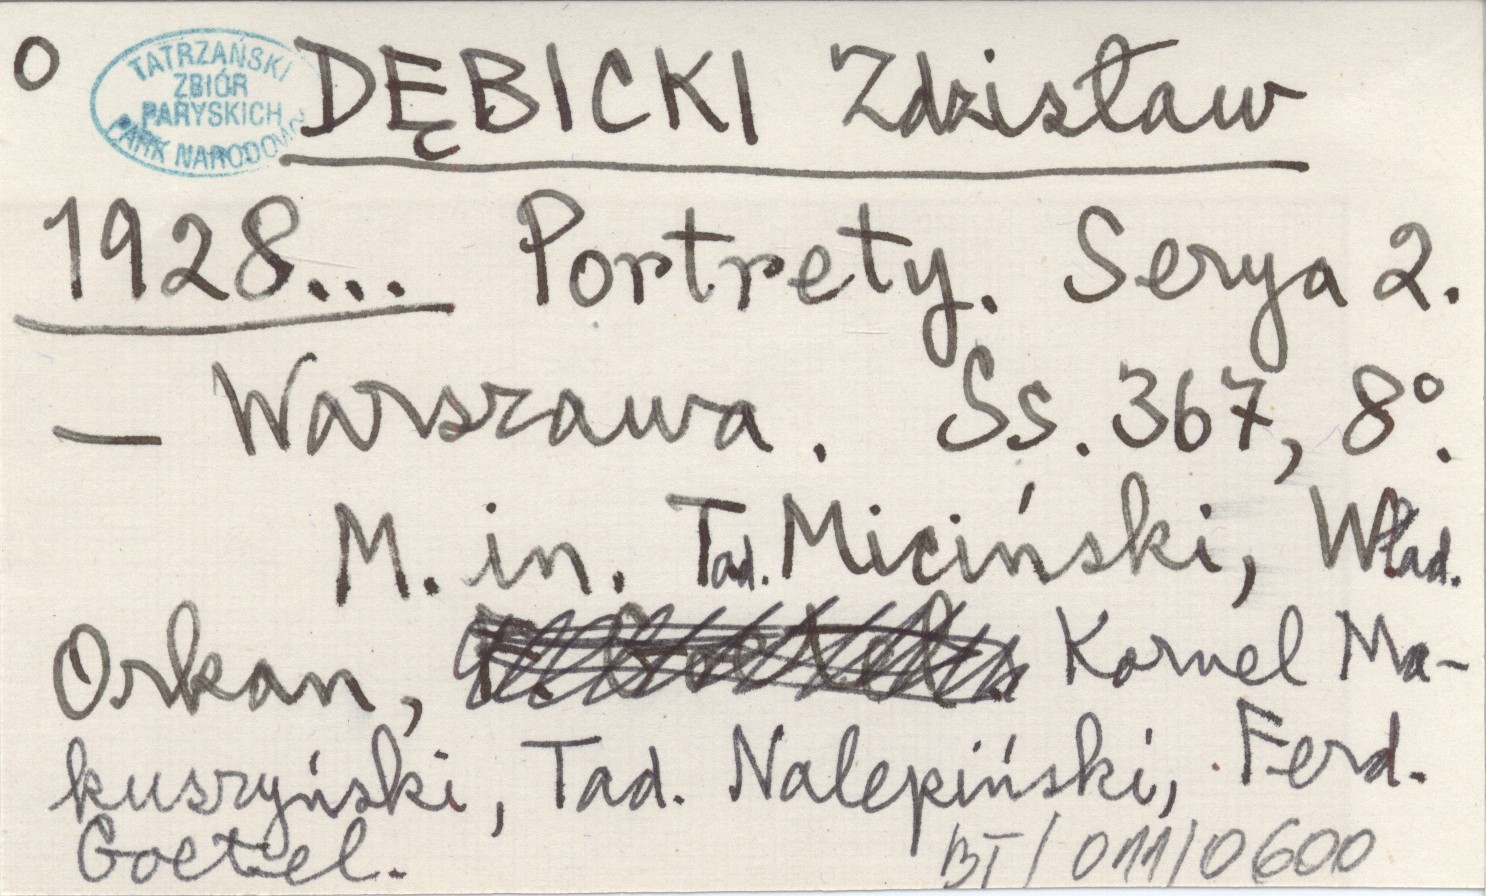 o DĘBICKI Zdzisław
TATRZAŃSKI
ZBIÓR
PARYSKICH
PARK NARODOWY
1928... Portrety. Serya 2.
— Warszawa. Ss. 367, 8°.
M. in. Tad. Miciński, Wład.
Orkan, Kornel Ma-
kuszyński, Tad. Nalepiński, Ferd.
Goetel.
BT/011/0600